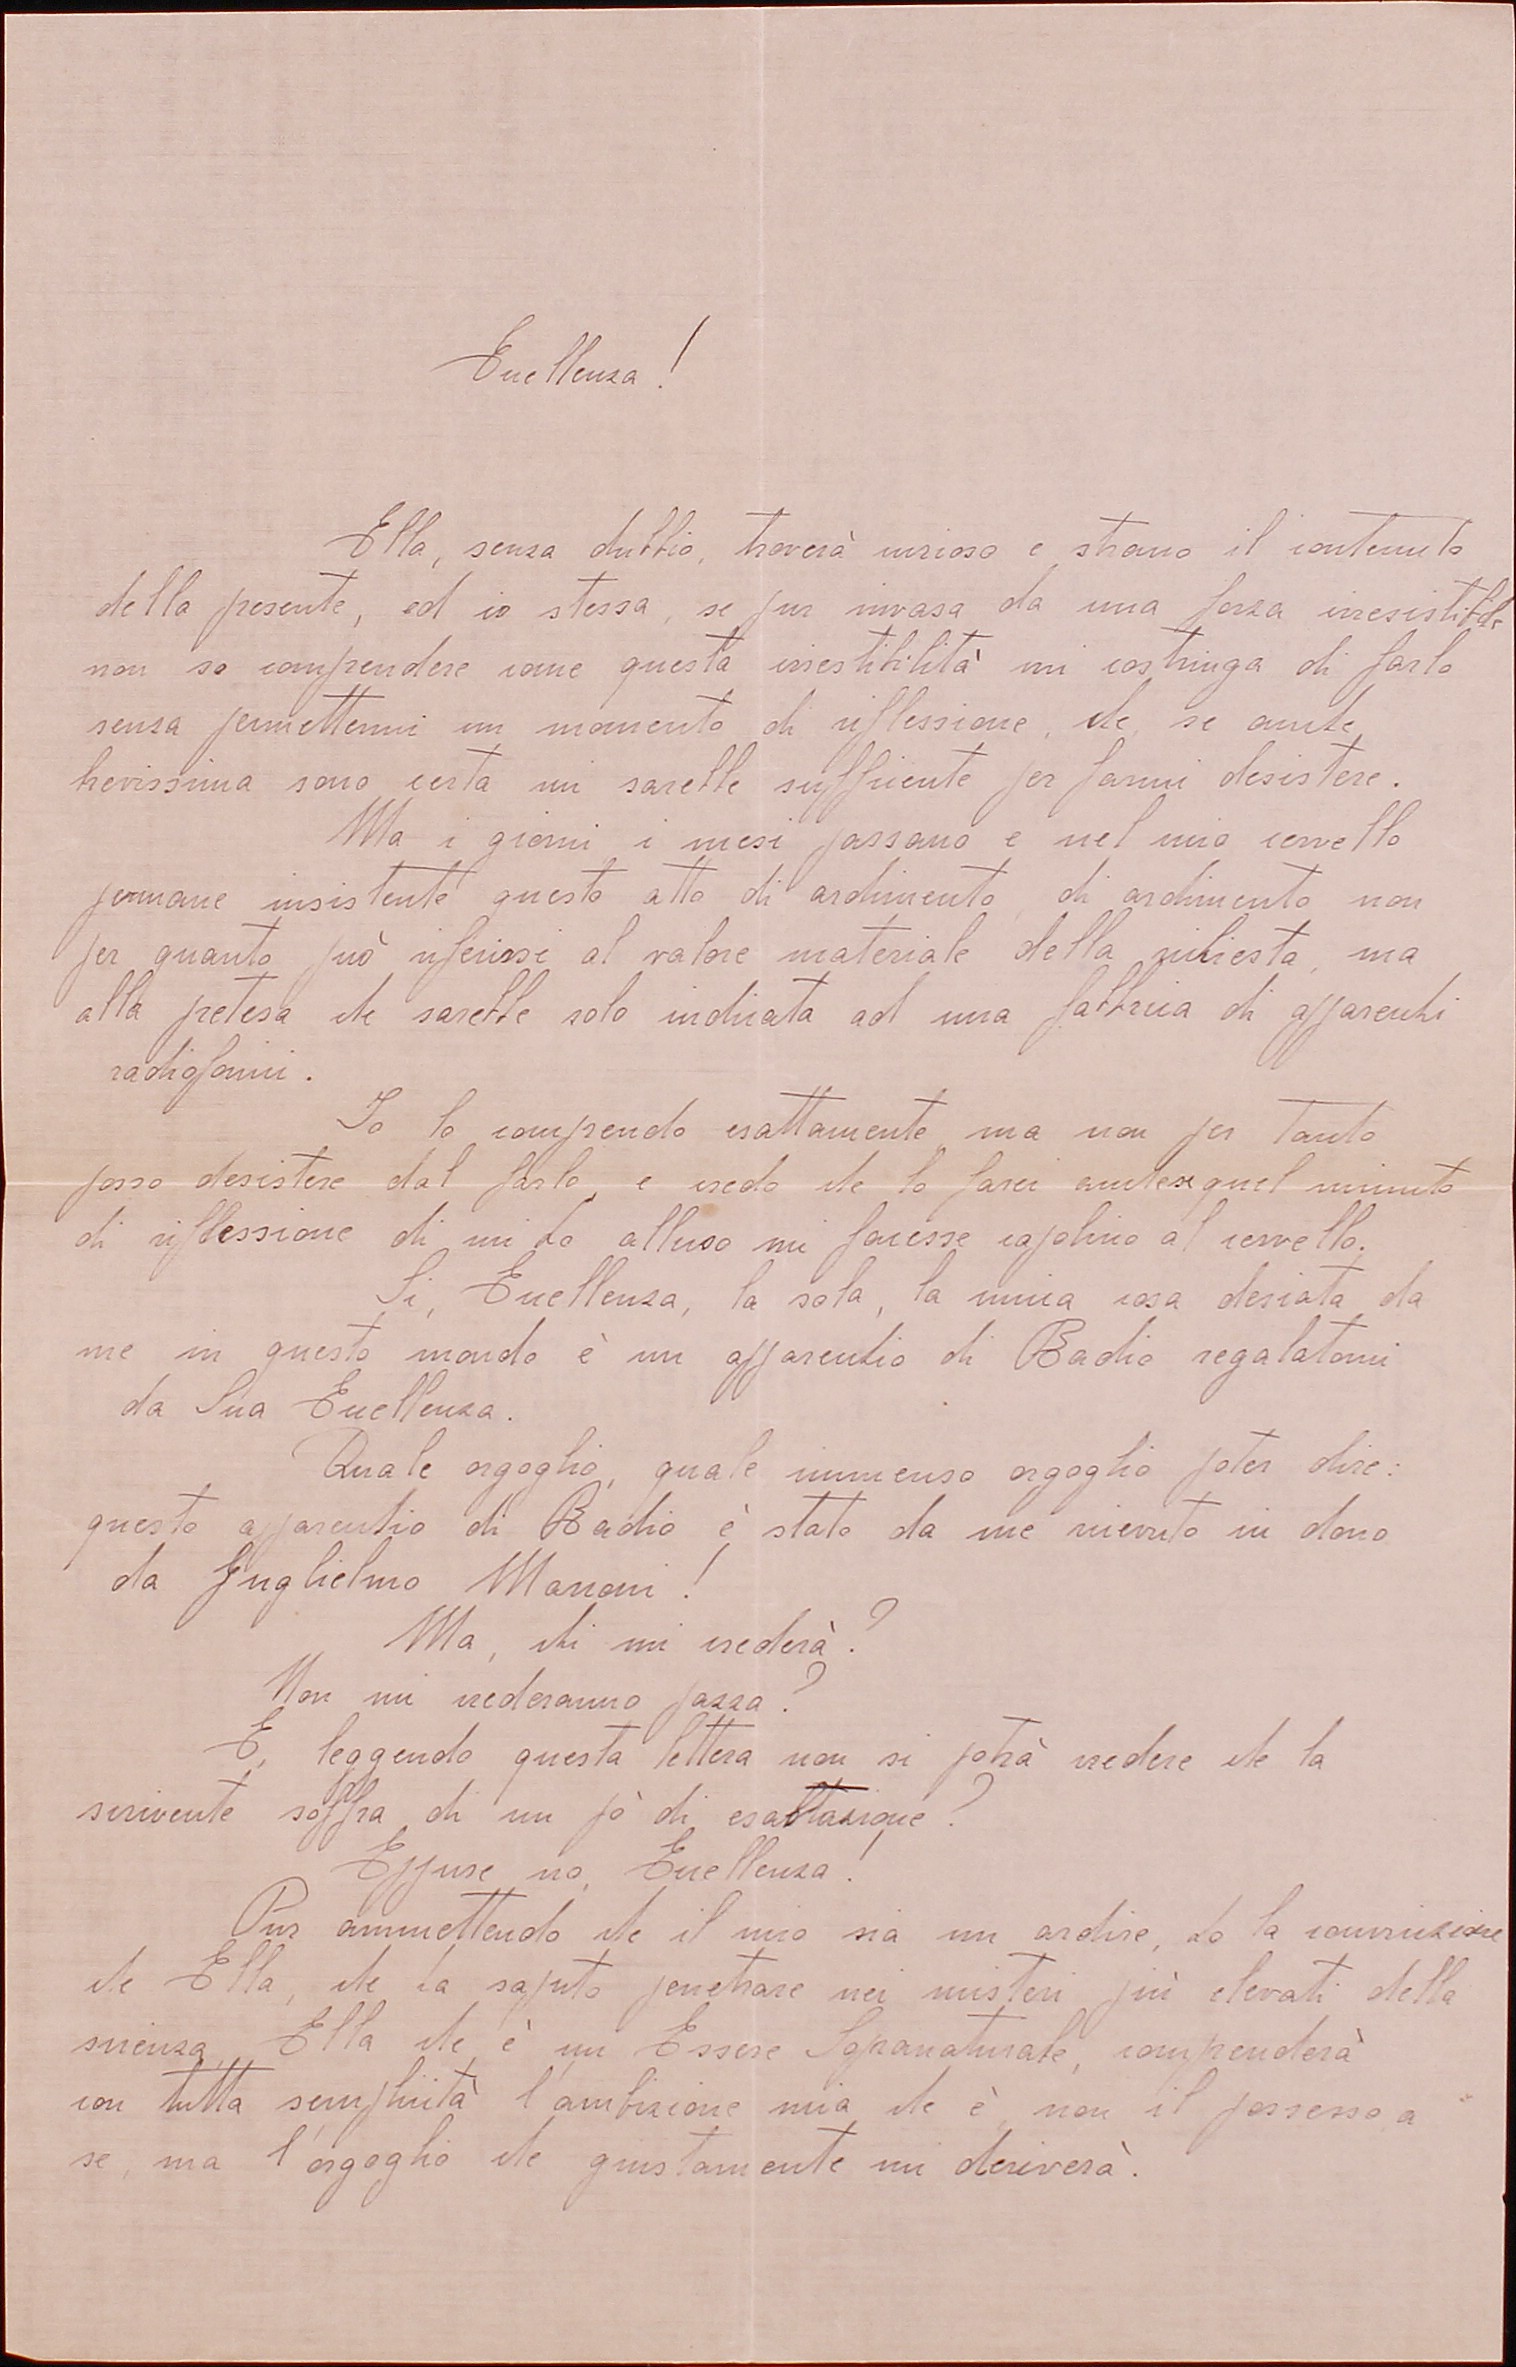 Eccellenza!
Ella, senza dubbio, troverà curioso e strano il contenuto
della presente, ed io stessa, se pur invasa da una forza irresistibile
non so comprendere come questa irrestibilità mi costringa di farlo
senza permettermi un momento di riflessione, che, se anche
brevissima sono certa mi sarebbe sufficiente per farmi desistere.
Ma i giorni i mesi passano e nel mio cervello
permane insistente questo atto di ardimento, di ardimento non
per quanto può riferirsi al valore materiale della richiesta, ma
alla pretesa che sarebbe solo indicata ad una fabbrica di apparenchi
radiofonici.
Io lo comprendo esattamente, ma non per tanto
posso desistere dal farlo, e credo che lo farei anche se quel minuto
di riflessione di cui ho alluso mi facesse capolino al cervello.
Si, Eccellenza, la sola, la unica cosa desiata da
me in questo mondo è un apparenchio di Radio regalatomi
da Sua Eccellenza.
Quale orgoglio, quale immenso orgoglio poter dire:
questo apparenchio di Radio è stato da me ricevuto in dono
da Guglielmo Marconi!
Ma, chi mi crederà?
Non mi crederanno pazza?
E, leggendo questa lettera non si potrà credere che la
scrivente soffra di un pò di esaltazione?
Eppure no, Eccellenza!
Pur ammettendo che il mio sia un ardire, ho la convinzione
che Ella, che ha saputo penetrare nei misteri più elevati della
scienza, Ella che è un Essere Sopranaturale, comprenderà
con tutta semplicità l'ambizione mia che è, non il possesso a
se, ma l'orgoglio che giustamente mi deriverà.